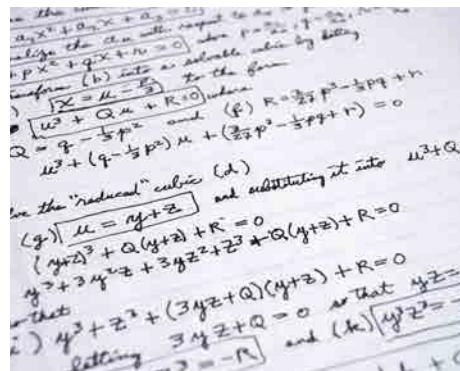 a₁x² + a₂x + a₃ =
the with respect to a₀
+ px² + qx + r = 0 where p = 
transform (b) into a solvable cubic by letting
x = u - p/3 to the form
u³ + Qu + R = 0 where
Q = q - 1/3 p² and (f) R = 2/27 p³ - 1/3 pq + r
u³ + (q - 1/3 p²) u + (2/27 p³ - 1/3 pq + r) = 0
the "reduced" cubic (d)
(g) u = y + z and substituting it into u³ + Q
(y+z)³ + Q(y+z) + R = 0
y³ + 3y²z + 3yz² + z³ + Q(y+z) + R = 0
so that
i) y³ + z³ + (3yz + Q)(y+z) + R = 0
letting 3yz + Q = 0 so that yz =
³ = -R and (k) y³z³ = -